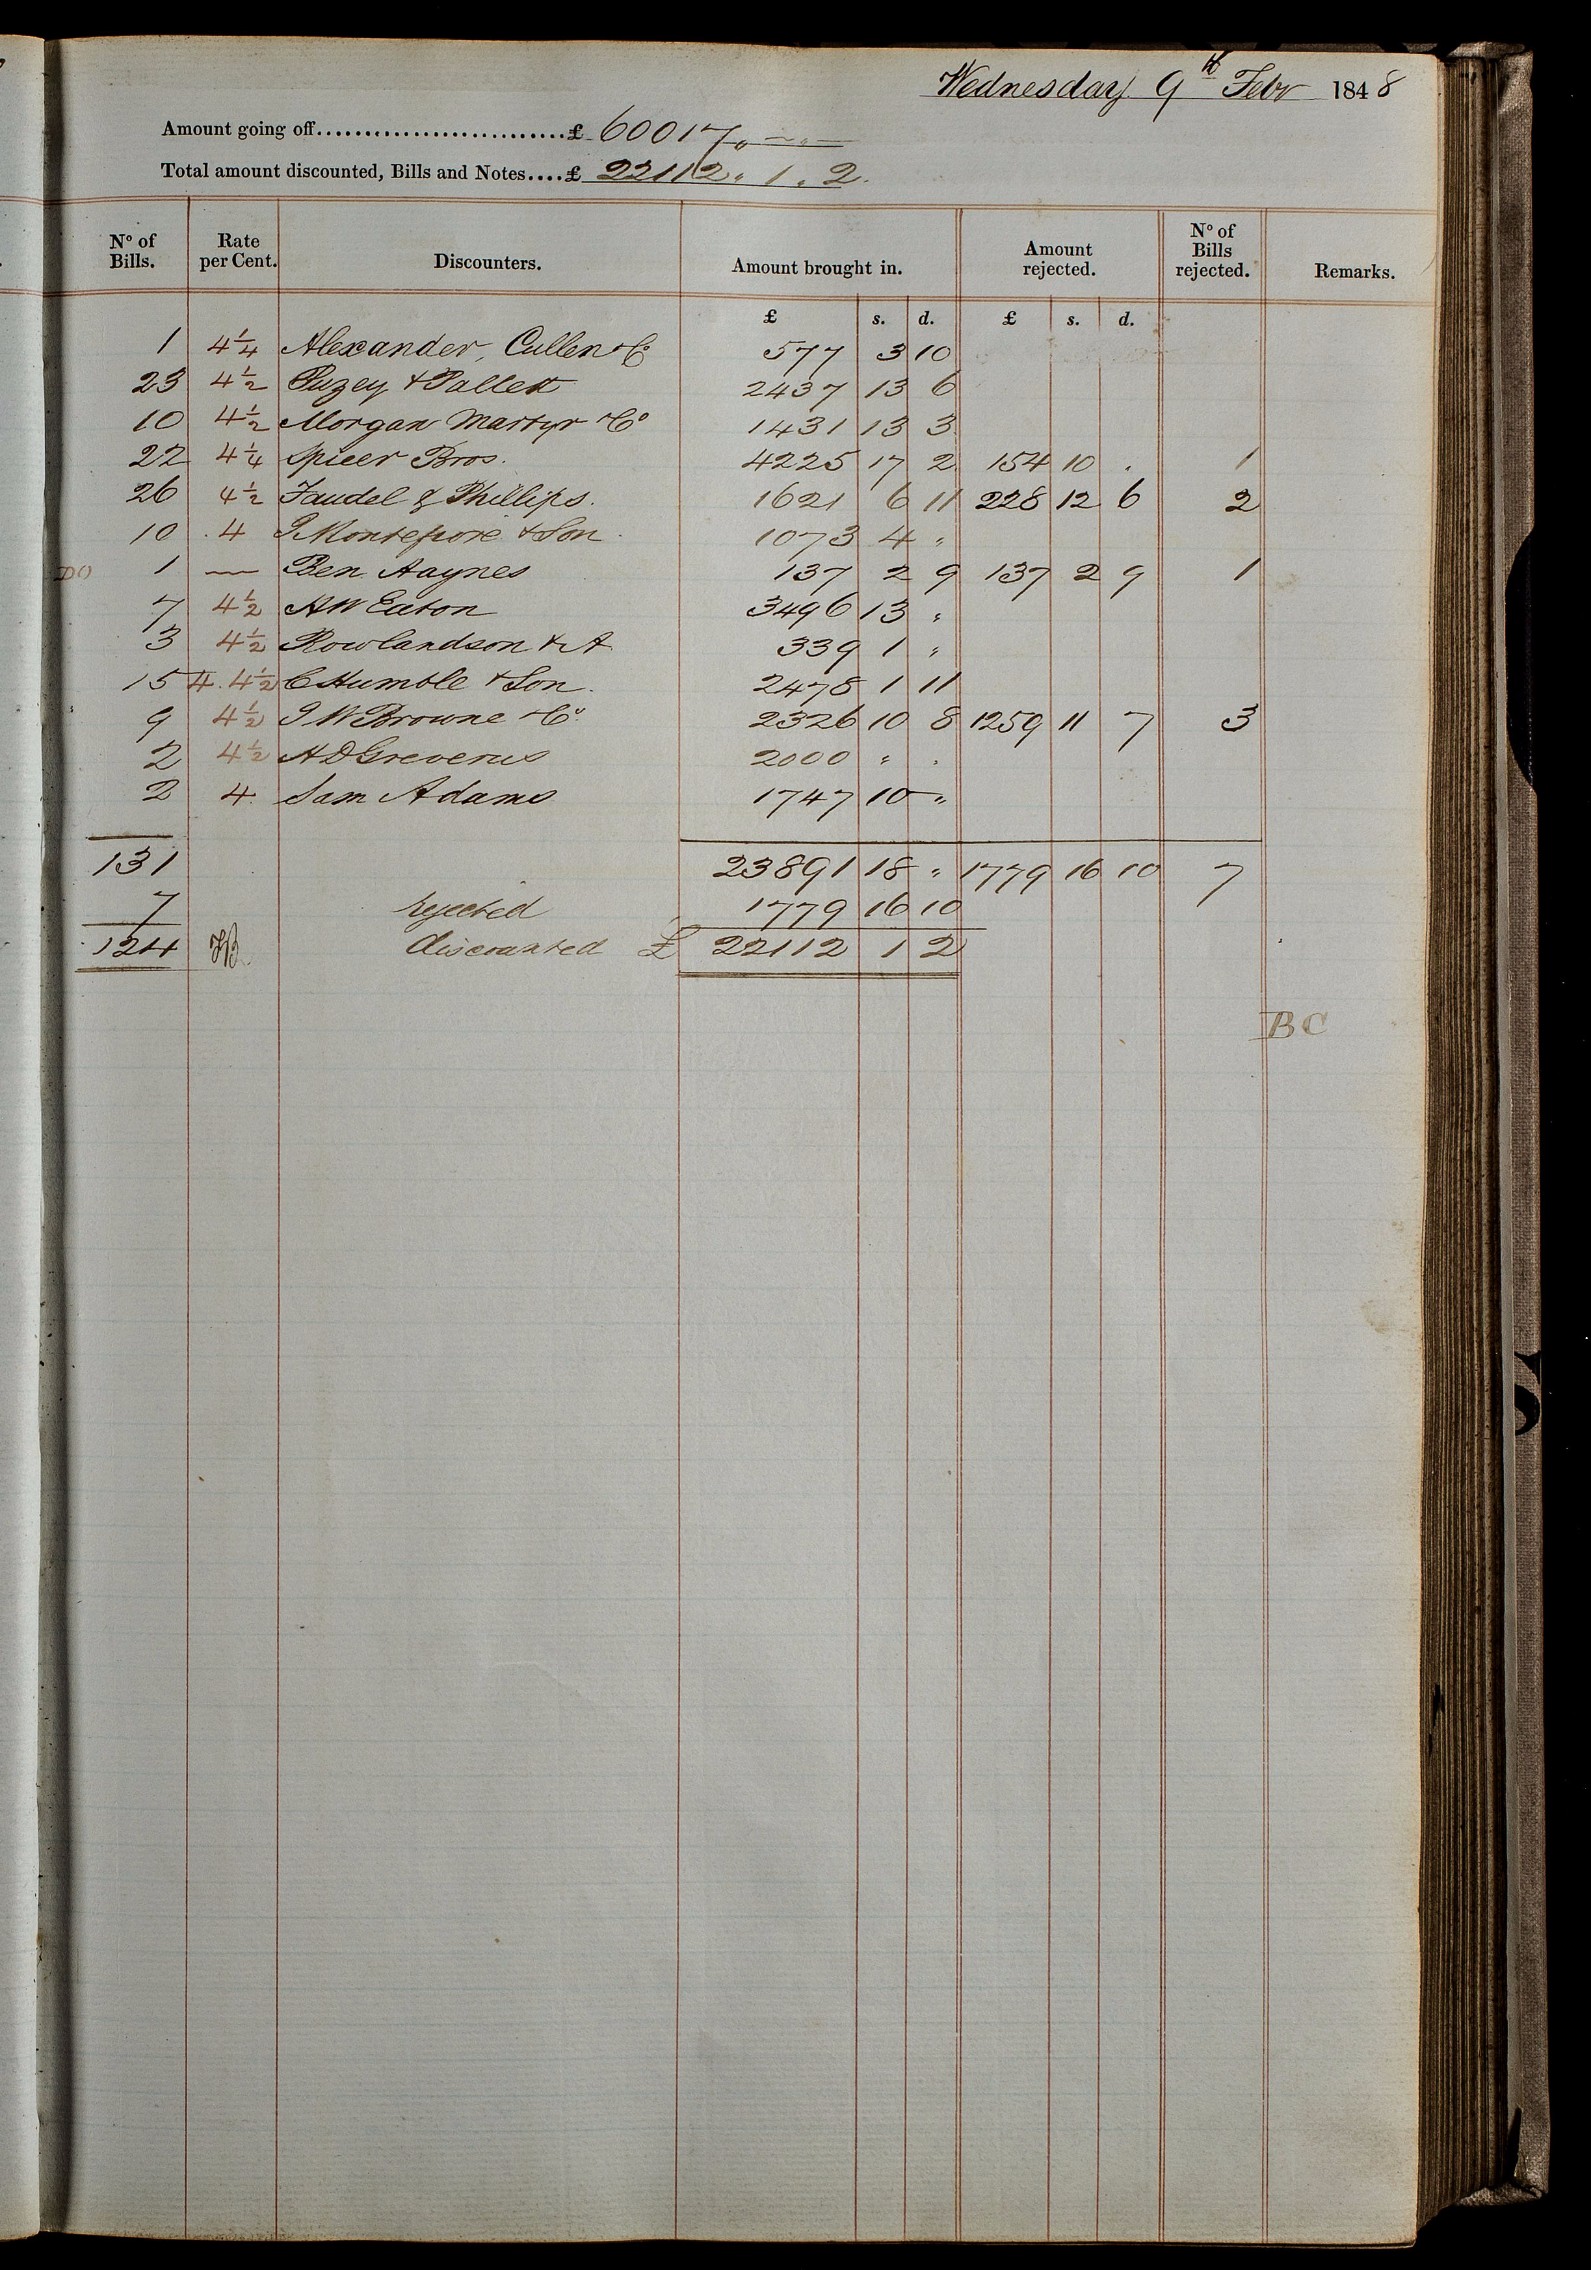 Wednesday 9th Febr 1848
Amount going off...........................£ 60017 " — " —
Total amount discounted, Bills and Notes....£ 22112 " 1 " 2
No of Bills. Rate per Cent. Discounters. Amount brought in. Amount rejected. No of Bills rejected. Remarks.
£ s. d. £ s. d.
1 4¼ Alexander, Cullen & Co 577 3 10
23 4½ Puzey & Pallett 2437 13 6
10 4½ Morgan Martyr & Co 1431 13 3
22 4¼ Spicer Bros. 4225 17 2 154 10 . 1
26 4½ Faudel & Phillips. 1621 6 11 228 12 6 2
10 4 J Montefiore & Son 1073 4 "
DO 1 — Ben Haynes 137 2 9 137 2 9 1
7 4½ HW Eaton 3496 13 "
3 4½ Rowlandson & A 339 1 "
15 4.4½ C Humble & Son. 2478 1 11
9 4½ J W Browne & Co. 2326 10 8 1259 11 7 3
2 4½ HD Greverus 2000 " .
2 4 Sam Adams 1747 10 "
131 23891 18 " 1779 16 10 7
7 Rejected 1779 16 10
124 HB discounted £ 22112 1 2
BC